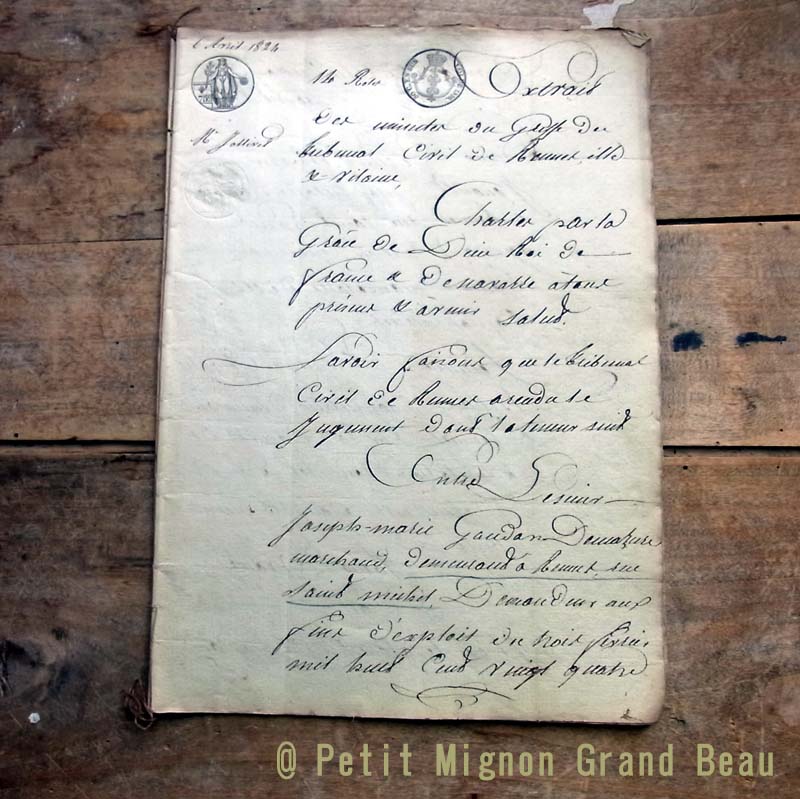 6 Avril 1824
14 Roles Extrait
Des minutes du Greffe du
tribunal Civil de Rennes, ille
& vilaine,
Mr Jollivet
Charles par la
Grace de Dieu Roi de
france & De navarre à tous
présens & à venir salut.
Savoir faisons que le tribunal
Civil de Rennes a rendu le
Jugement dont la teneur suit
Entre Le sieur
Joseph-marie Gaudon Demazure
marchand, demeurant à Rennes, rue
Saint michel, Demandeur aux
fins d'exploit du trois février
mil huit Cent vingt quatre
@ Petit Mignon Grand Beau